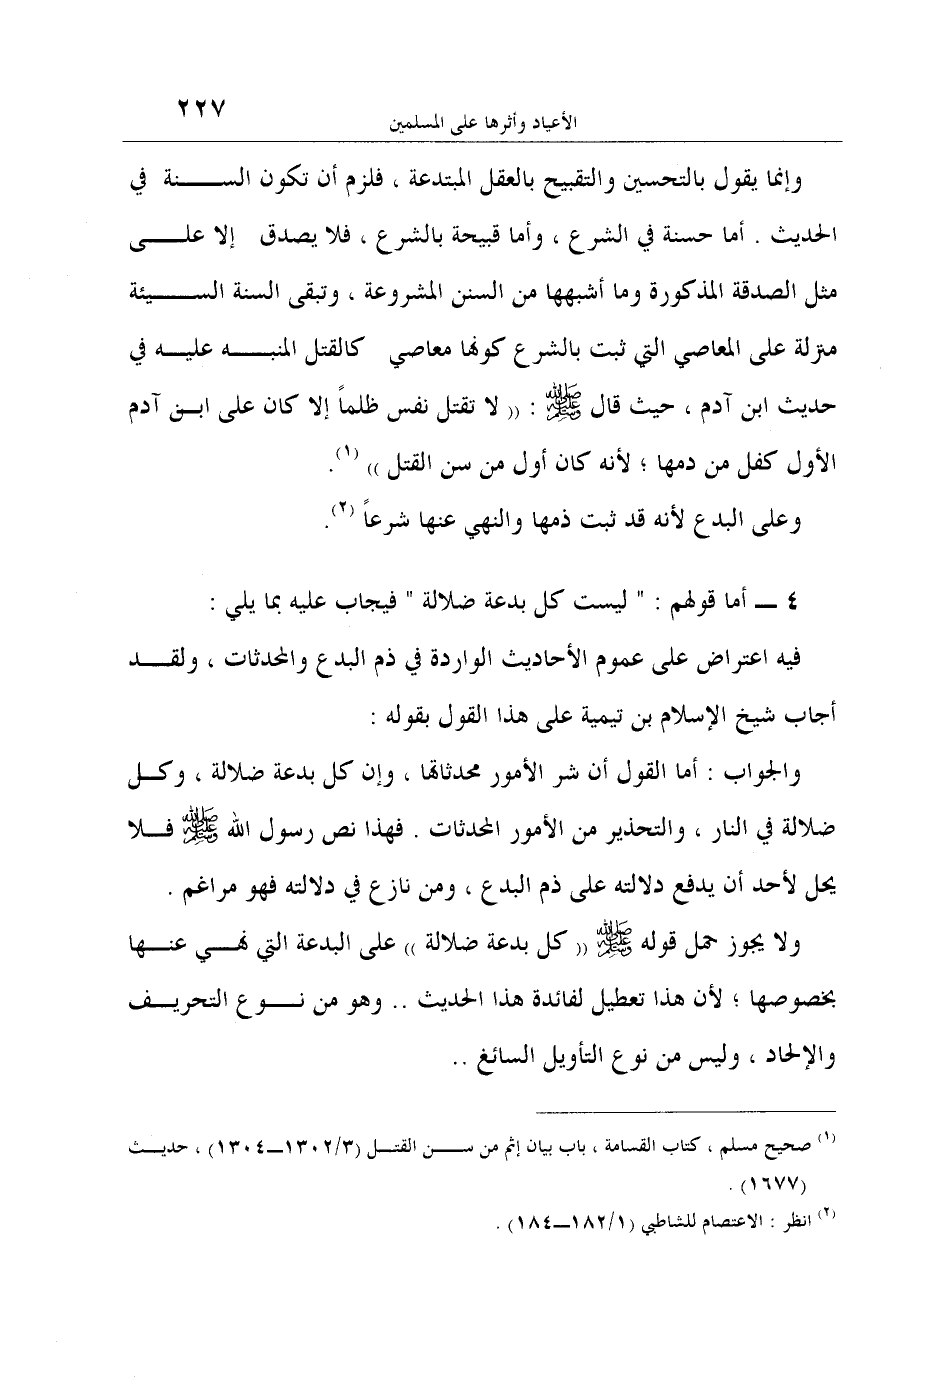 ٢٢٧
الأعياد وأثرها على المسلمين
وإنما يقول بالتحسين والتقبيح بالعقل المبتدعة ، فلزم أن تكون الســـــنة في
الحديث . أما حسنة في الشرع ، وأما قبيحة بالشرع ، فلا يصدق إلا علـــى
مثل الصدقة المذكورة وما أشبهها من السنن المشروعة ، وتبقى السنة الســـيئة
منزلة على المعاصي التي ثبت بالشرع كونها معاصي كالقتل المنبـــه عليـــه في
حديث ابن آدم ، حيث قال ﷺ : (( لا تقتل نفس ظلماً إلا كان على ابـــن آدم
الأول كفل من دمها ؛ لأنه كان أول من سن القتل )) (١).
وعلى البدع لأنه قد ثبت ذمها والنهي عنها شرعاً (٢).
٤ ـــ أما قولهم : " ليست كل بدعة ضلالة " فيجاب عليه بما يلي :
فيه اعتراض على عموم الأحاديث الواردة في ذم البدع والمحدثات ، ولقـــد
أجاب شيخ الإسلام بن تيمية على هذا القول بقوله :
والجواب : أما القول أن شر الأمور محدثاتها ، وإن كل بدعة ضلالة ، وكـــل
ضلالة في النار ، والتحذير من الأمور المحدثات . فهذا نص رسول الله ﷺ فـــلا
يحل لأحد أن يدفع دلالته على ذم البدع ، ومن نازع في دلالته فهو مراغم .
ولا يجوز حمل قوله ﷺ (( كل بدعة ضلالة )) على البدعة التي نهـــي عنـــها
بخصوصها ؛ لأن هذا تعطيل لفائدة هذا الحديث .. وهو من نـــوع التحريـــف
والإلحاد ، وليس من نوع التأويل السائغ ..
(١) صحيح مسلم ، كتاب القسامة ، باب بيان إثم من ســـن القتـــل (١٣٠٢/٣ـــ١٣٠٤) ، حديـــث
(١٦٧٧) .
(٢) انظر : الاعتصام للشاطبي (١٨٢/١ـــ١٨٤) .